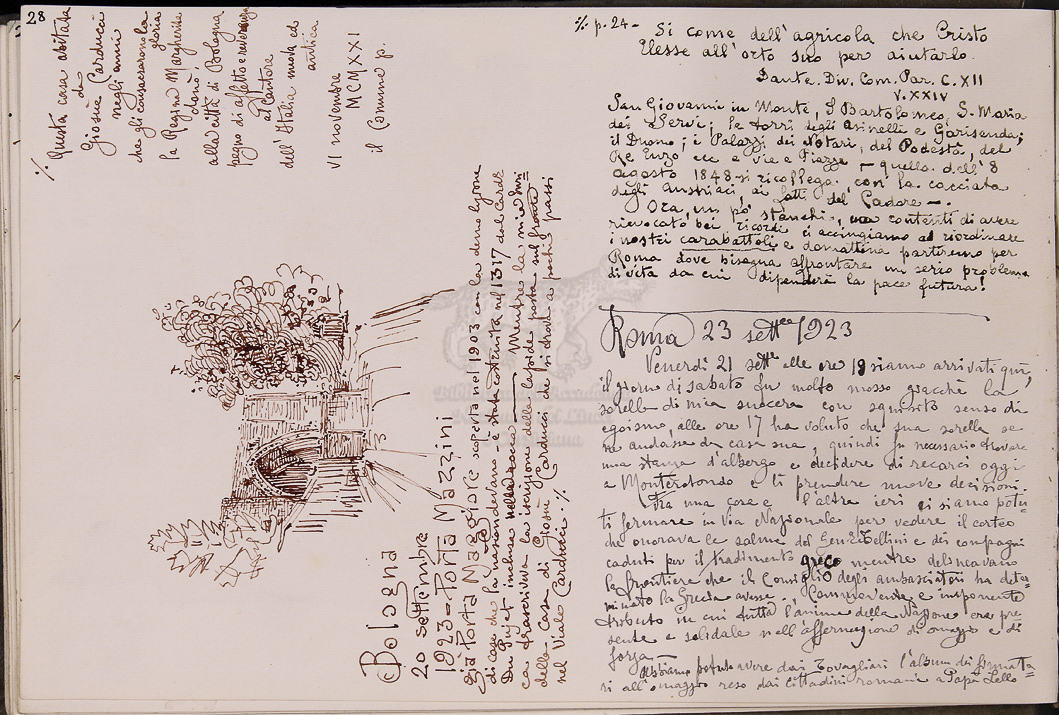 28
Bologna
20 settembre
1923 - Porta Mazzini
già Porta Maggiore scoperta nel 1903 con la demolizione
di case che la nascondevano - è stata costruita nel 1317 dal Card.
Du Pujet. inclusa nella rocca — Mentre la mia ami=
ca trascriveva la iscrizione della lapide posta sul fronte
della Casa di Giosuè Carducci che si trova a pochi passi
nel Viale Carducci: %
% Questa casa abitata
da
Giosuè Carducci
negli anni
che gli consacrarono la
gloria
la Regina Margherita
donò
alla città di Bologna
pegno di affetto e reverenza
al Cantore
dell'Italia nuova ed
antica
VI novembre
MCMXXI
il Comune p.
% p. 24 - Si come dell'agricola che Cristo
Elesse all'orto suo per aiutarlo.
Dante. Div. Com. Par. C. XII
V. XXIV
San Giovanni in Monte, S Bartolomeo, S. Maria
dei Servi; le torri degli Asinelli e Garisenda;
il Duomo; i Palazzi dei Notari, del Podestà, del
Re Enzo ecc e Vie e Piazze - quella dell'8
agosto 1848 si ricollega, con la cacciata
degli Austriaci, ai fatti del Cadore -.
Ora, un pò stanchi, ma contenti di avere
rievocato bei ricordi ci accingiamo ad riordinare
i nostri carabattoli e domattina partiremo per
Roma dove bisogna affrontare un serio problema
di vita da cui dipenderà la pace futura!
Roma 23 settre 1923
Venerdì 21 sett. alle ore 19 siamo arrivati qui,
il giorno di sabato fu molto mosso giacchè la
sorella di mia suocera con squisito senso di
egoismo, alle ore 17 ha voluto che sua sorella se
ne andasse da casa sua, quindi fu necessario trovare
una stanza d'albergo e decidere di recarci oggi
a Monterotondo e lì prendere nuove decisioni.
Tra una cosa e l'altra ieri ci siamo potu-
ti fermare in Via Nazionale per vedere il corteo
che onorava le salme del Gen. Tellini e dei compagni
caduti per il tradimento greco mentre delineavano
la frontiere che il Consiglio degli ambasciatori ha deter=
minato la Grecia avesse. Commovente e imponente
tributo in cui tutta l'anima della Nazione era pre
sente e solidale nell'affermazione di omaggio e di
forza. -
Abbiamo potuto avere dai Tovagliari l'album di firmata
ri all'omaggio reso dai cittadini romani a Papà Lello